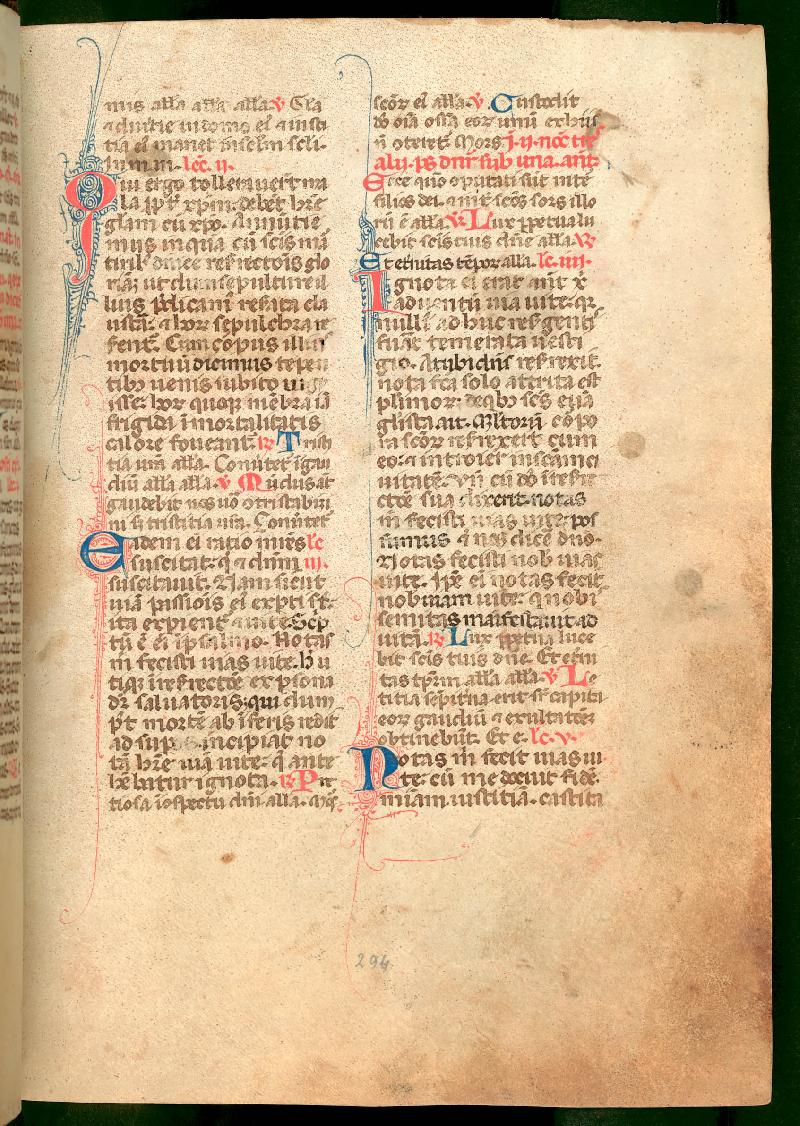 mus alla alla alla ℣ Gla
⁊ diuitie in domo ei ⁊ iusti
tia ei manet in sclm scli.
lum in lec. ii.
Qui ergo tollerauerit ma
la ꝓpt xpm. debet hre
gliam cū xpo.
mus in qua cū scis mr̄
tirib dulce resrectois glo
riā; ut dum sepulture il
lius
uistr̄. ⁊ hoc sepulchra re
ferit. Cum copus illiu
mortuū dicimus tepen
tibꝫ uenis subito
isse. hoc quoqꝫ mēbra iā
frigidi imortalitatis
calore fouerant. ℟ Tristi
tia ura alla. Conuertet ī gau
diū alla alla ℣ Mūdus āt
gaudebit uos uō cōtristabim
ni sꝫ tristitia ura. Conūtet
Eadem ei ratio mūes lc
suscitat. q ⁊ dnm iii.
suscitauit. Nam sicut
uiā passiois ei expti st.
ita experient ⁊ uite. Scp
tū ē ei ī psalmo. Notas
m fecisti uias uite. h u
tiqꝫ ī resrectōe ex psona
dr̄ saluatoris; qui dum
pt mortē ab īferis redit
ad supos īcipiat no
tā hre uiā uite. q ante
hēbatur ignota. ℟ Pre
tiosa ī ɔspectu dni alla. Mrs
scōꝝ ei alla. ℣ Custodit
dn̄s oīa ossa eoꝝ unū ex his
ñ ɔteret. Mors. ī ii. noct͛ tre
alij. ps dnr̄ sub una. ant.
Ecce quō ɔputati sūt inte
filios dei. ⁊ int scos sors illo
rū ē alla. ℣ Lux ꝑpetua lu
cebit scis tuis dñe alla. ℟
Et eternitas tēpor alla. lc. iiii.
Ignota ei erat ant x
aduentū uia uite. qꝫ
nulli adhuc resgentis
fuāt temerata uesti
gio. At ubi dns resrexit.
nota fca solo attrita est
plimoꝝ. de qbꝫ scs euā
glista ait. Mltorū corpo
ra scoꝝ resrexert cum
eo. ⁊ introiert ī scām ci
uitatē. Vn cū dō ī resre
ctōe sua dixerit. notas
m fecisti uias uite. pos
sumus ⁊ nos dice dno.
Notas fecisti nob uias
uite. Ipe ei notas fecit
nob uiam uite. q nobis
semitas māifestauit ad
uitā. ℟ Lux ꝑpetua luce
bit scis tuis dne. Et eterni
tas tp̄rm alla alla. ℣ Le
titia sepiterna erit sr̄ capita
eoꝝ gaudiū ⁊ exultatiōes
obtinebūt. Et e. lc. v.
Notas m fecit uias ui
te. cū me docuit fidē.
miām. iustitiā. castita
294